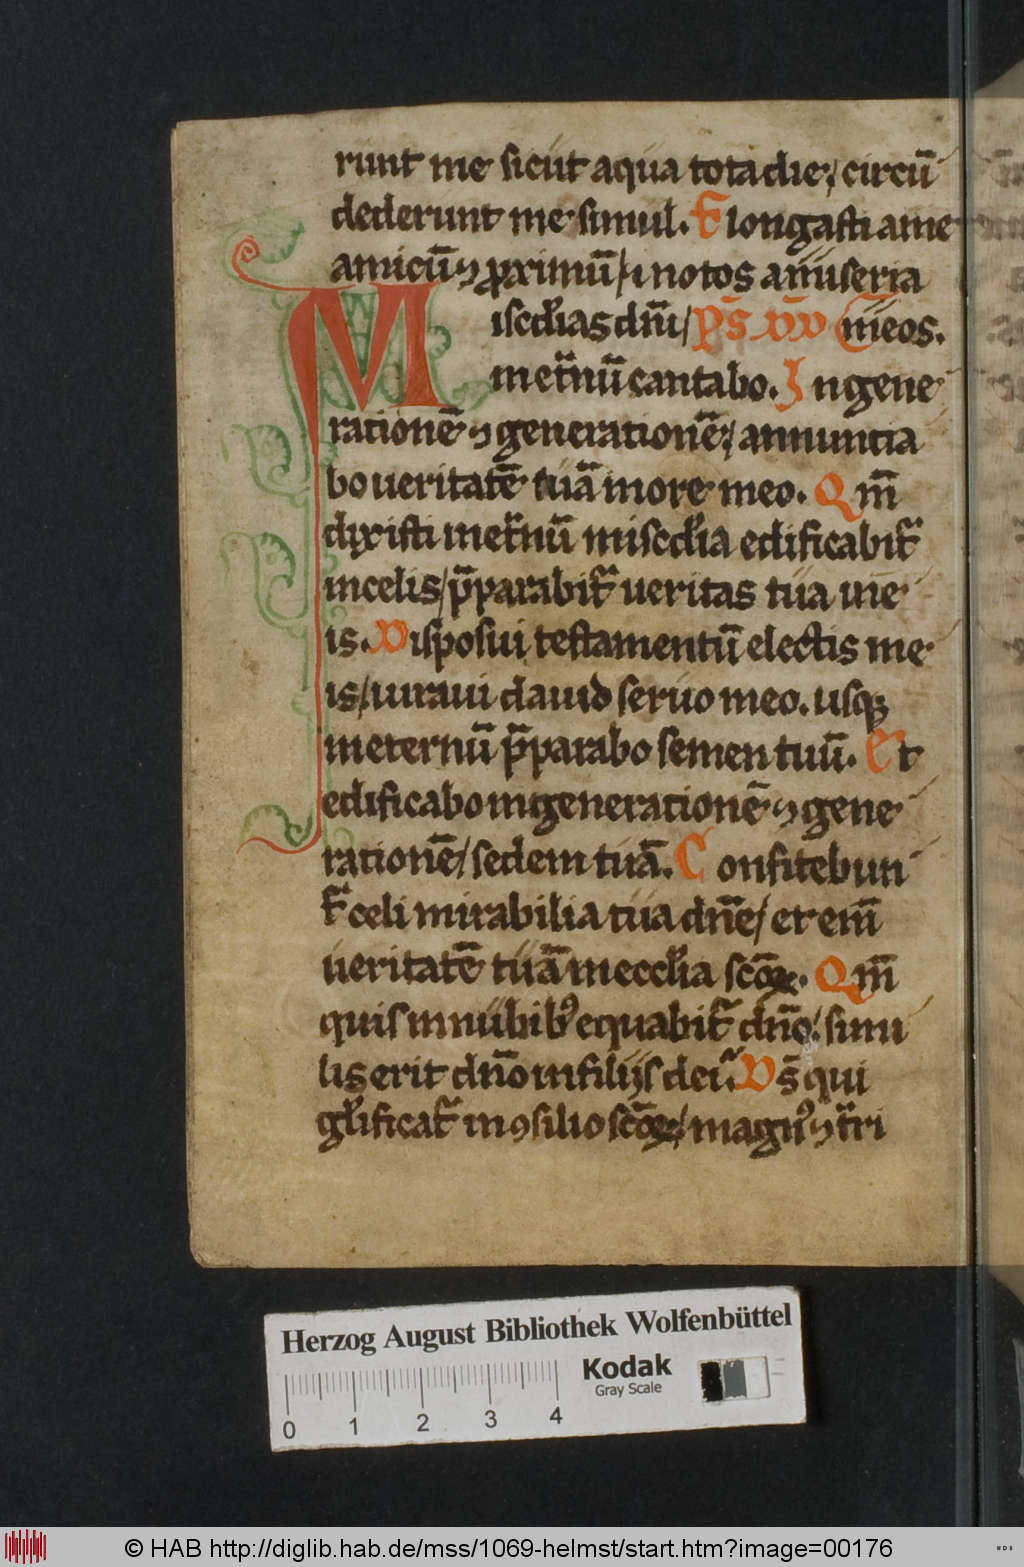 runt me sicut aqua tota die / circū
dederunt me simul. Elongasti a me
amicū ⁊ ꝓximū / ⁊ notos a miseria
Misc̄dias dnī / p̄s meos.
in et̄nū cantabo. In gene
rationē ⁊ generationē / annuntia
bo ueritatē tuā in ore meo. Qm̄
dixisti in et̄nū misc̄dia edificabit᷑
in celis / p̄parabit᷑ ueritas tua in e
is. Disposui testamentū electis me
is / iuraui dauid seruo meo. usqꝫ
in eternū p̄parabo semen tuū. Et
edificabo in generationē ⁊ gene
rationē / sedem tuā. Confitebun
t᷑ celi mirabilia tua dn̄e / et eni̅
ueritatē tuā in eccl̄ia sc̄oꝝ. Qm̄
quis in nubibꝰ equabit᷑ dn̄o / simi
lis erit dn̄o in filijs dei. Ds̄ qui
gl̄ificat᷑ in ꝯsilio sc̄oꝝ / magnꝰ ⁊ t̄ri
Herzog August Bibliothek Wolfenbüttel
Kodak
Gray Scale
0 1 2 3 4
© HAB http://diglib.hab.de/mss/1069-helmst/start.htm?image=00176